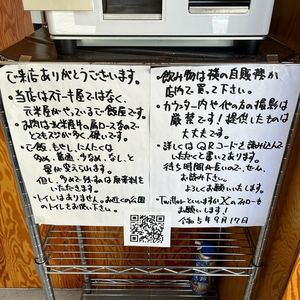 ご来店ありがとうございます。
・当店はステーキ屋ではなく、
元米屋がやっている飯屋です。
とてもスジが多く、硬いです。
・ご飯、もやし、にんにくは
多め、普通、少なめ、なし、と
量が変えられます。
但し、多めで残すのは廃棄料を
いただきます。
・トイレはありません。お近くの公園
のトイレをお使い下さい。
・飲み物は横の自販機か
店内で買って下さい。
・カウンター内や他の方の撮影は
厳禁です！提供したものは
大丈夫です。
・詳しくはQRコードを読み込んで
いただくと書いてあります。
待ち時間長いので、ぜひ、
お読み下さい。
よろしくお願いいたします。
・Twitterといいますか、Xのフォローも
お願いします！
令和5年9月17日